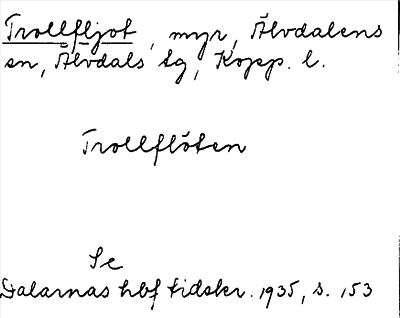 Trollfljot, myr, Älvdalens
sn, Älvdals tg, Kopp. l.
Trollflöten
Se
Dalarnas hbf tidskr. 1935, s. 153